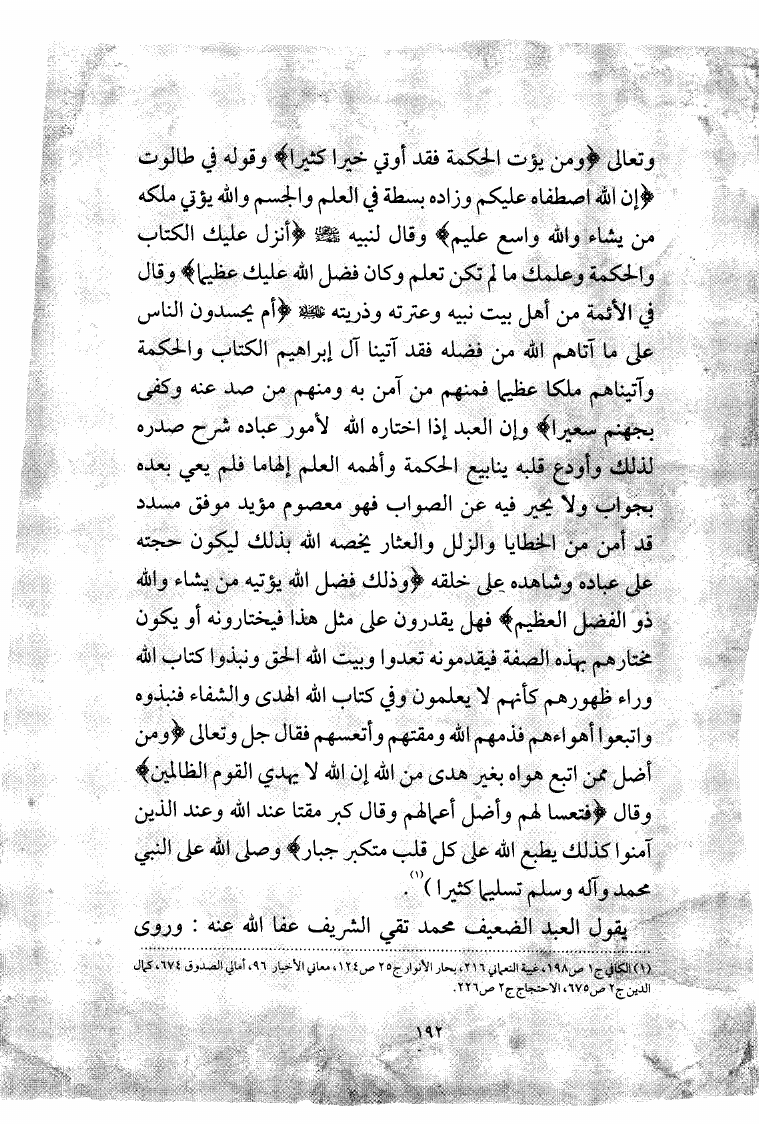 وتعالى ﴿ومن يؤت الحكمة فقد أوتي خيرا كثيرا﴾ وقوله في طالوت
﴿إن الله اصطفاه عليكم وزاده بسطة في العلم والجسم والله يؤتي ملكه
من يشاء والله واسع عليم﴾ وقال لنبيه ﷺ ﴿أنزل عليك الكتاب
والحكمة وعلمك ما لم تكن تعلم وكان فضل الله عليك عظيما﴾ وقال
في الأئمة من أهل بيت نبيه وعترته وذريته ﴿أم يحسدون الناس
على ما آتاهم الله من فضله فقد آتينا آل إبراهيم الكتاب والحكمة
وآتيناهم ملكا عظيما فمنهم من آمن به ومنهم من صد عنه وكفى
بجهنم سعيرا﴾ وإن العبد إذا اختاره الله لأمور عباده شرح صدره
لذلك وأودع قلبه ينابيع الحكمة وألهمه العلم إلهاما فلم يعي بعده
بجواب ولا يحير فيه عن الصواب فهو معصوم مؤيد موفق مسدد
قد أمن من الخطايا والزلل والعثار يخصه الله بذلك ليكون حجته
على عباده وشاهده على خلقه ﴿وذلك فضل الله يؤتيه من يشاء والله
ذو الفضل العظيم﴾ فهل يقدرون على مثل هذا فيختارونه أو يكون
مختارهم بهذه الصفة فيقدمونه تعدوا وبيت الله الحق ونبذوا كتاب الله
وراء ظهورهم كأنهم لا يعلمون وفي كتاب الله الهدى والشفاء فنبذوه
واتبعوا أهواءهم فذمهم الله ومقتهم وأتعسهم فقال جل وتعالى ﴿ومن
أضل ممن اتبع هواه بغير هدى من الله إن الله لا يهدي القوم الظالمين﴾
وقال ﴿فتعسا لهم وأضل أعمالهم وقال كبر مقتا عند الله وعند الذين
آمنوا كذلك يطبع الله على كل قلب متكبر جبار﴾ وصلى الله على النبي
محمد وآله وسلم تسليما كثيرا )(١).
يقول العبد الضعيف محمد تقي الشريف عفا الله عنه : وروى
(١) الكافي ج١ ص١٩٨، غيبة النعماني ٢١٦، بحار الأنوار ج٢٥ ص١٢٤، معاني الأخبار ٩٦، أمالي الصدوق ٦٧٤، كمال
الدين ج٢ ص٦٧٥، الاحتجاج ج٢ ص٢٢٦.
١٩٢